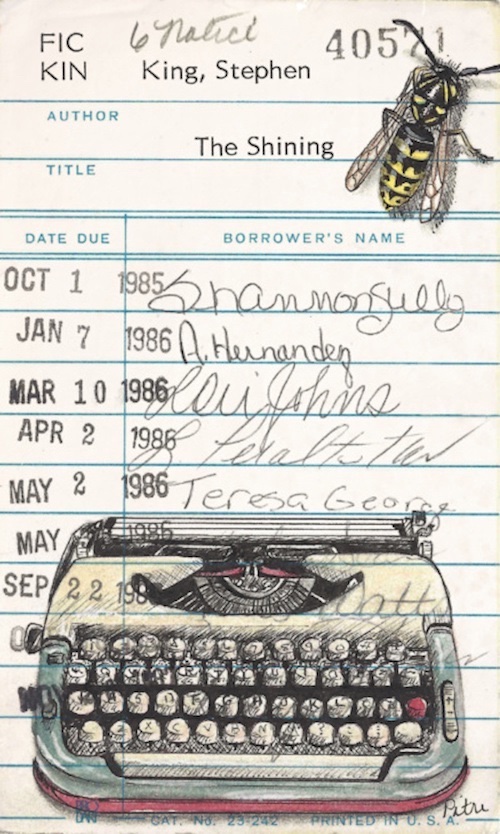 FIC
KIN
6 Notice
40571
King, Stephen
AUTHOR
The Shining
TITLE
DATE DUE BORROWER'S NAME
OCT 1 1985 Shannon
JAN 7 1986 A. Hernandez
MAR 10 1986 Johns
APR 2 1986
MAY 2 1986 Teresa George
MAY 1986
SEP 22 198
CAT. No. 23-242 PRINTED IN U.S.A.
Petru